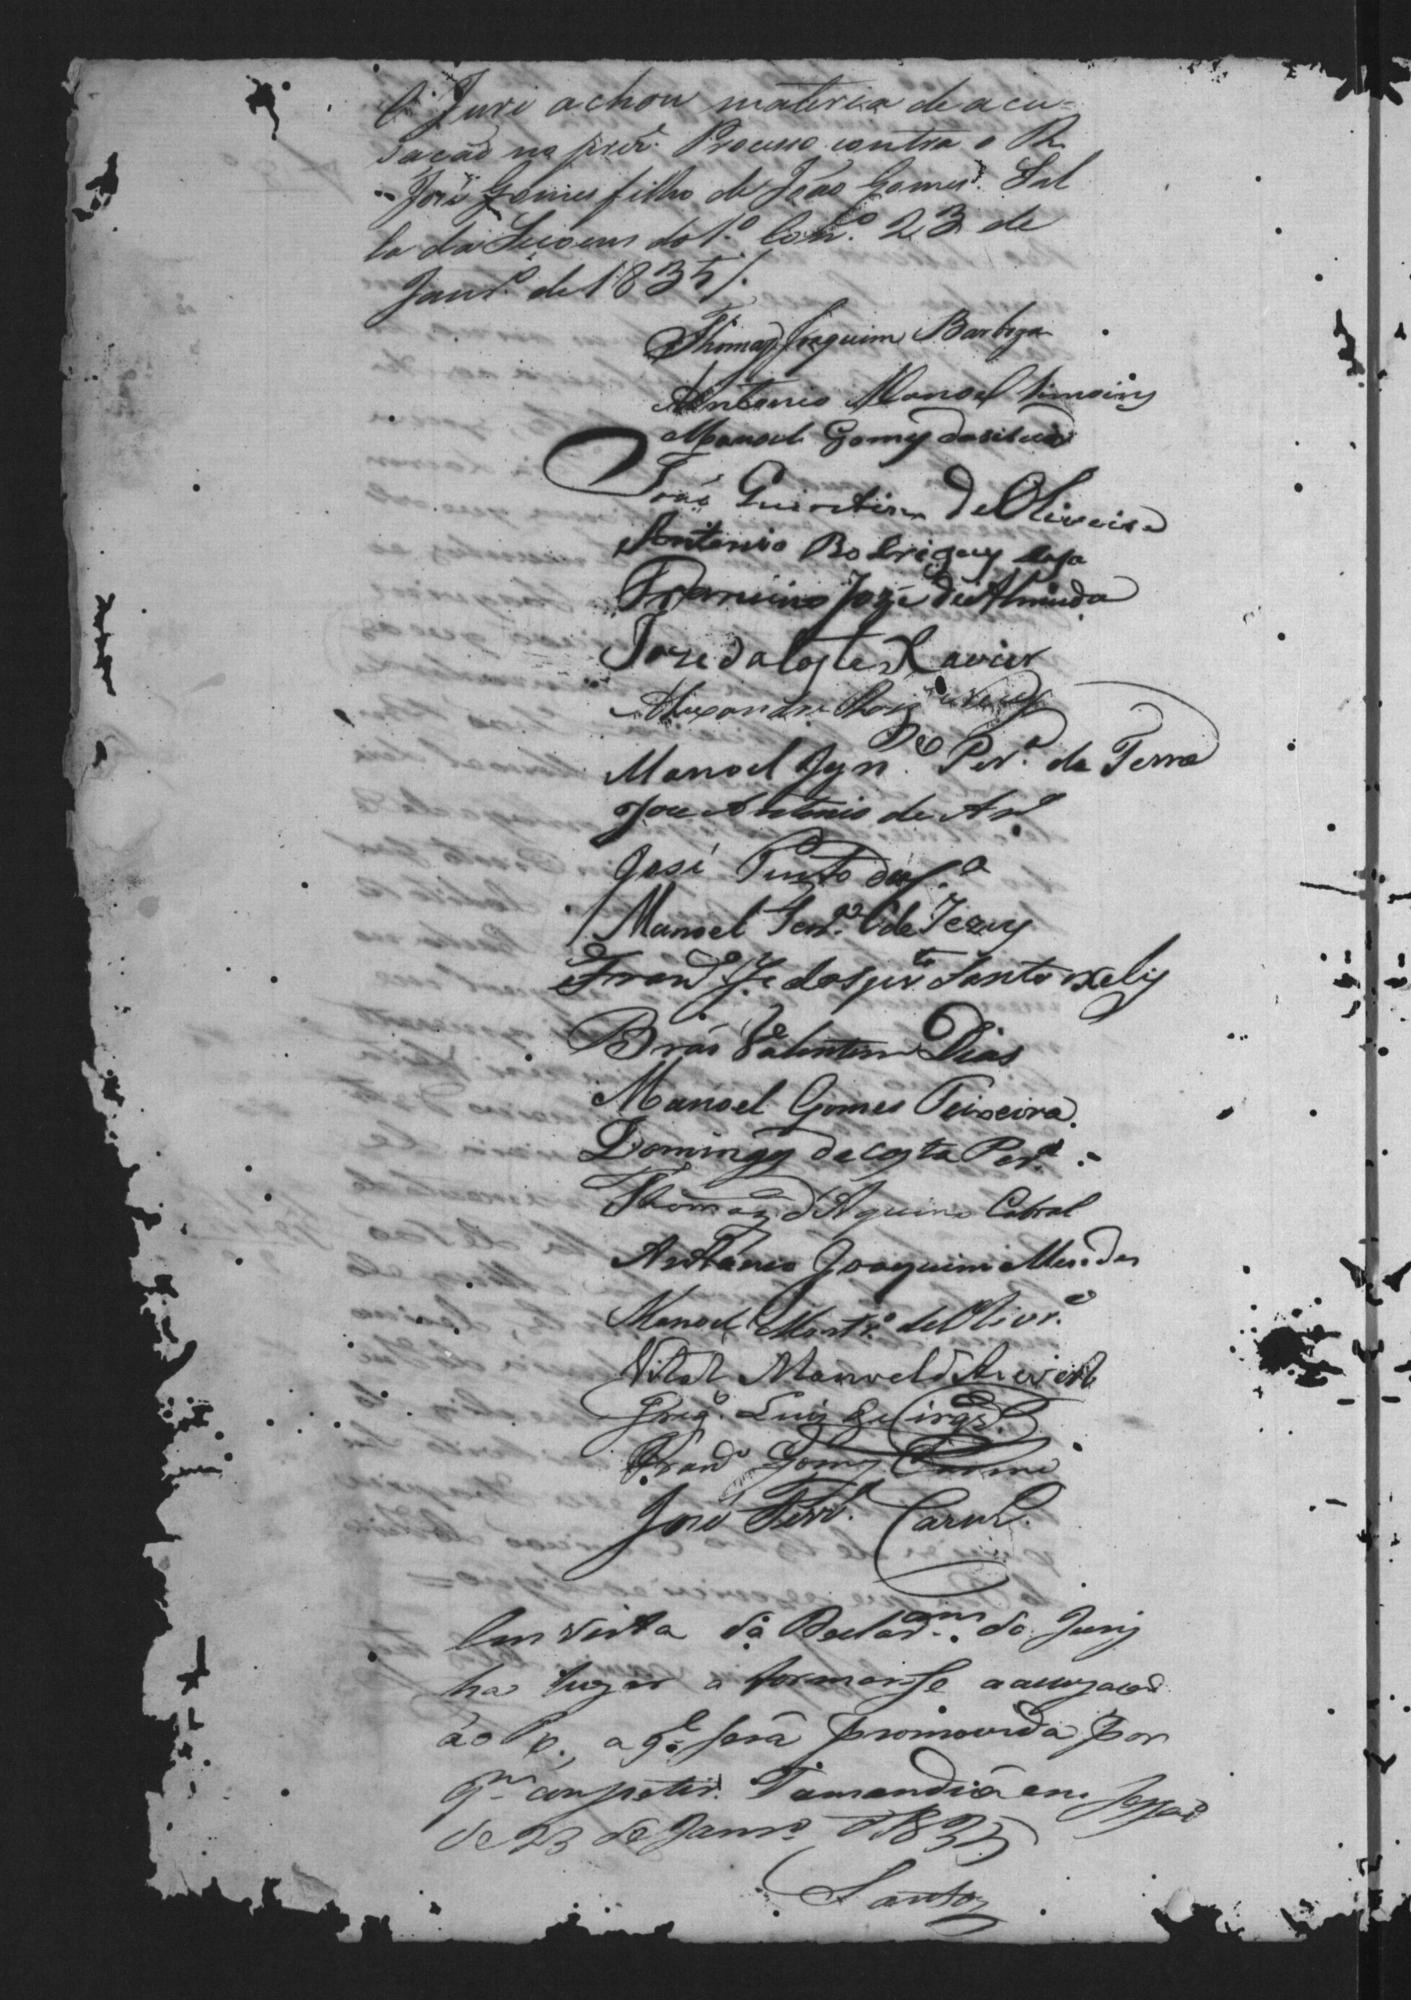 O Juri achou materia de acu-
sação no prez.e Processo contra o R.
José Gomes filho de João Gomes. Sal
la das Secoens do 1.º Cons.º 23 de
Janr.º de 1835/.
Thomas Joaquim Barboza
Antonio Manoel Simoins
Manoel Gomes dasilva
João de Oliveira
Antonio Rodriguez
Francisco José de Almeida
Joze da Costa Xavier
Alexandre
Manoel Ign.co Per.a da Terra
Joze Antonio de Ar.º
José Pinto da
Manoel de Jezus
Fran.co Je dos Santos
Brás Valentim Dias
Manoel Gomes Teixeira
Domingos da Costa Per.a
Thomas d'Aquino Cabral
Antonio Joaquim Mendes
Manoel Mart.s de Olivr.a
Vital Manoel
Greg.º Luiz de
Fran.co Gomes
José Ferr.a Carv.
Em vista da Declar.am do Jury
ha lugar a formarse aacuzacão
ao R., a q.l será promovida por
q.m competir. Tamanduá em Sessão
de 23 de Janr.º d'1835
Santos